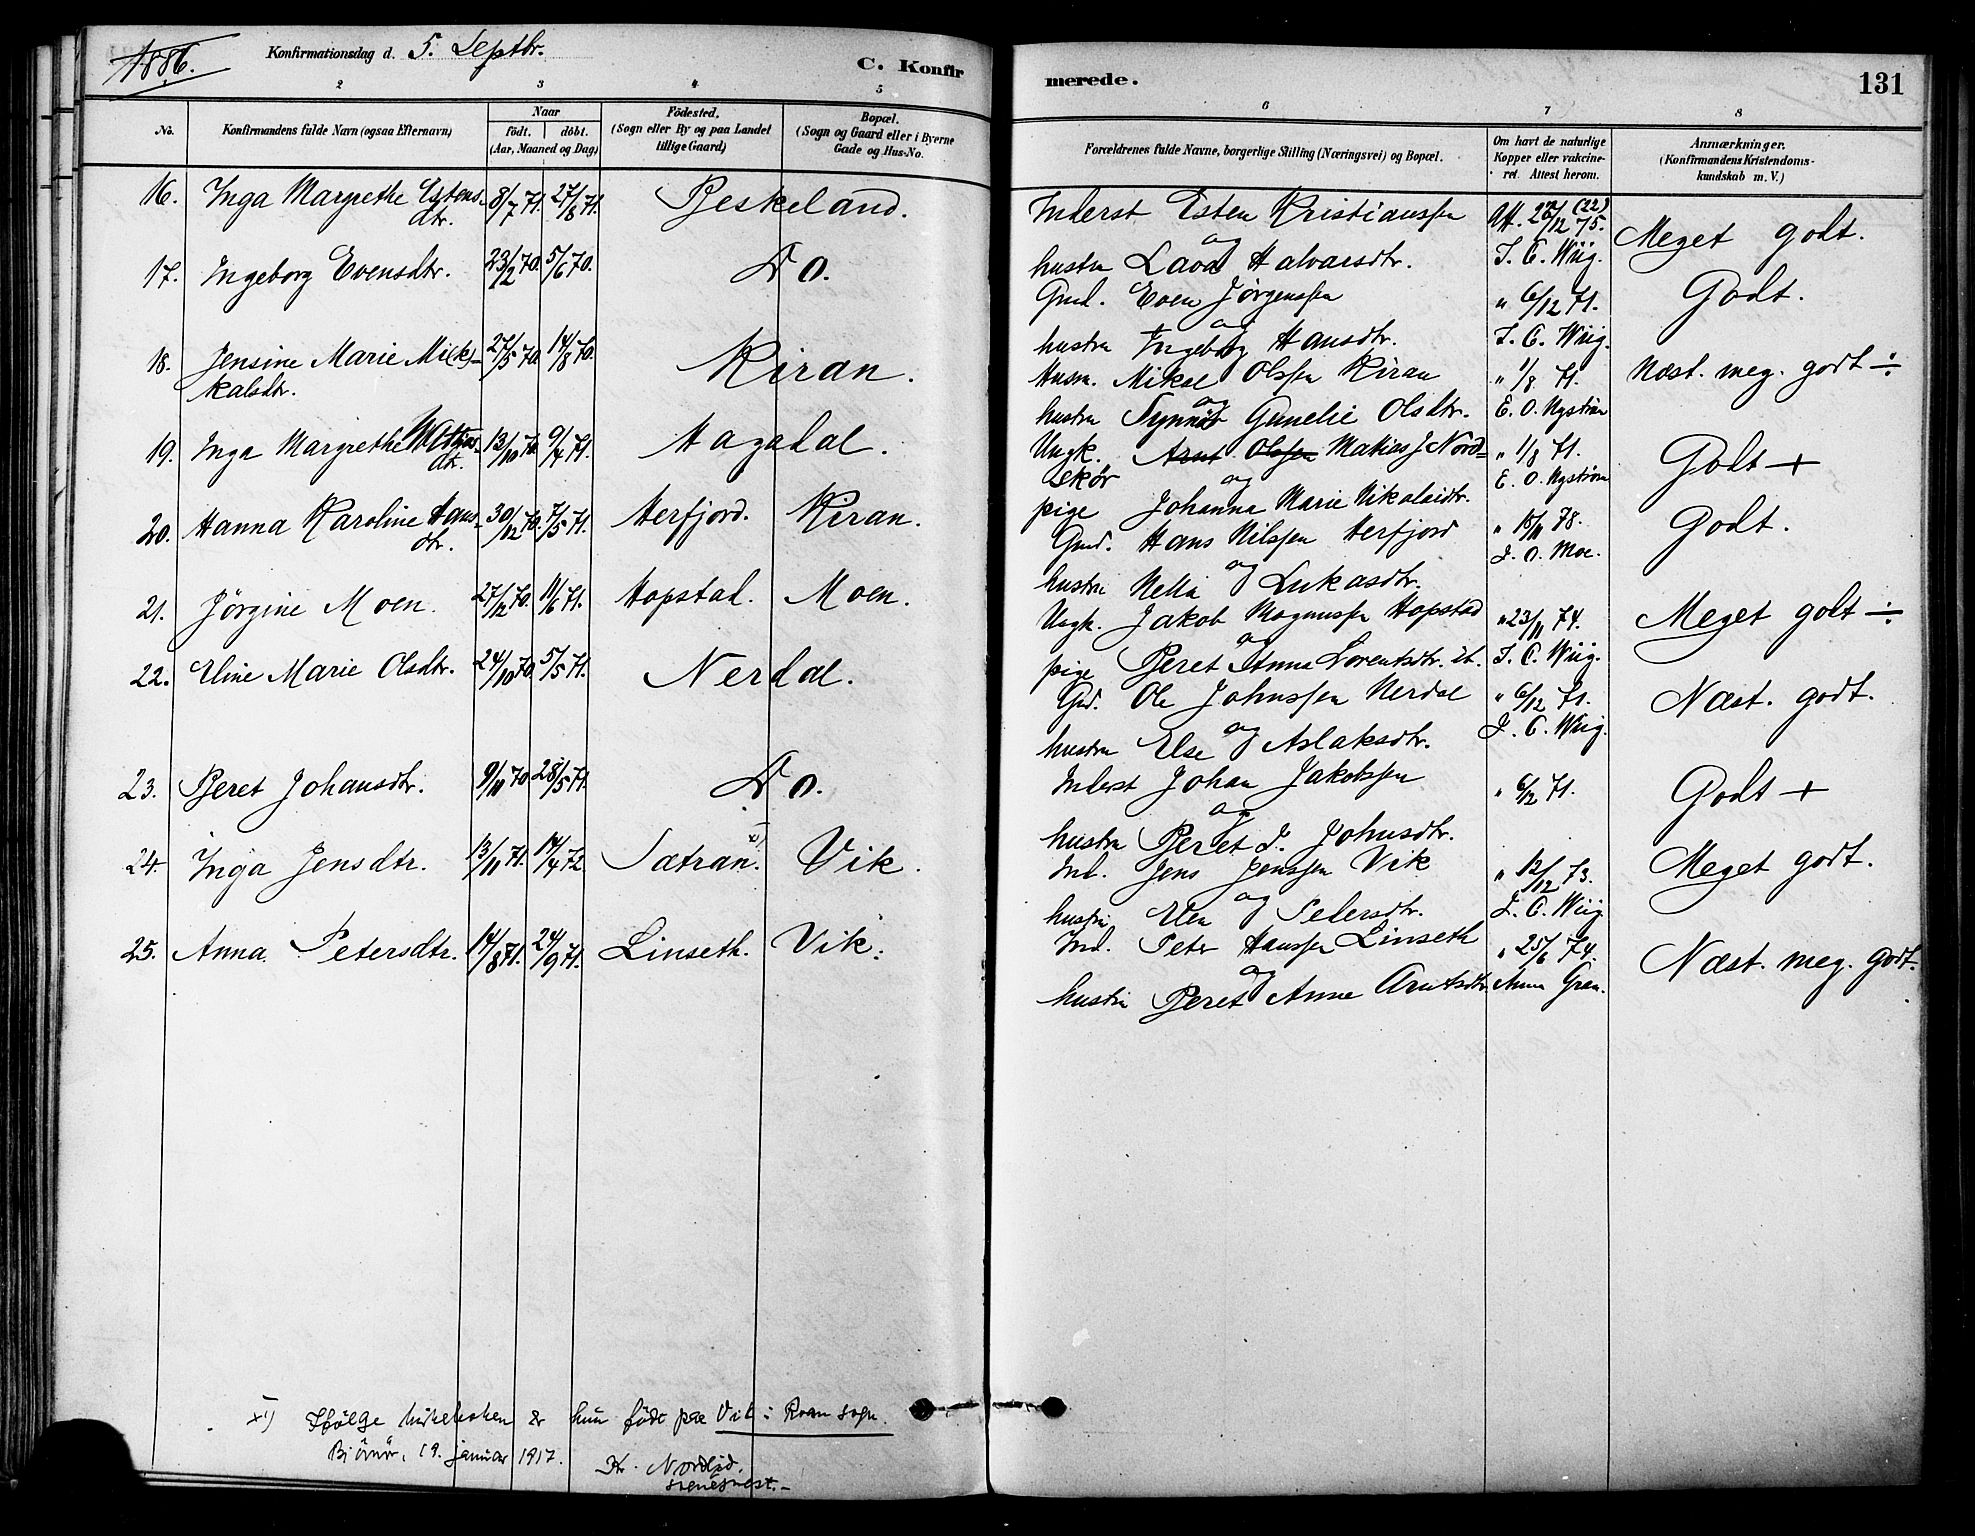 1886. Konfirmationsdag d. 5. Septbr. C. Konfirmerede. 131
2 3 4 5 6 7 8
No. Konfirmandens fulde Navn (ogsaa Efternavn) Naar födt. döbt. (Aar, Maaned og Dag) Födested. (Sogn eller By og paa Landet tillige Gaard) Bopæl. (Sogn og Gaard eller i Byerne Gade og Hus-No. Forældrenes fulde Navne, borgerlige Stilling (Næringsvei) og Bopæl. Om havt de naturlige Kopper eller vakcineret. Attest herom. Anmærkninger. (Konfirmandens Kristendomskundskab m. V.)
16. Inga Margrethe Estensdtr. 8/7 71. 27/8 71. Beskeland. Inderst Esten Kristianssen Att. 27/12 75. (22) Meget godt.
og
hustru Lava Halvarsdtr. J. C. Wiig.
17. Ingeborg Evensdtr. 23/2 70. 5/6 70. Do. Gmd. Even Jørgenssen " 6/12 71. Godt.
og
hustru Ingeborg Hansdtr. J. C. Wiig.
18. Jensine Marie Mikkalsdtr. 27/5 70. 14/8 70. Kiran. Husm. Mikal Olssen Kiran " 1/8 71. Næst. meg. godt ÷
og
hustru Synnøv Gunelie Olsdtr. E. O. Nystrøm
19. Inga Margrethe Mathiasdtr. 13/10 70. 9/4 71. Hagadal. Ungk. Arnt Olssen Matias J. Nord- " 1/8 71. Godt +
Lekør og E. O. Nystrøm
pige Johanna Marie Nikolaidtr.
20. Hanna Karoline Hansdtr. 30/12 70. 7/5 71. Herfjord. Kiran. Gmd. Hans Nilssen Herfjord " 15/11 78. Godt.
og J. O. Moe.
hustru Nella Lukasdtr.
21. Jørgine Moen. 27/12 70. 11/6 71. Hopstad. Moen. Ungk. Jakob Magnussen Hopstad " 23/11 74. Meget godt ÷
og
pige Beret Anna Lorentsdtr. ib. J. C. Wiig.
22. Eline Marie Olsdtr. 24/10 70. 5/5 71. Nerdal. Gmd. Ole Johnssen Nerdal " 6/12 71. Næst. godt.
og J. C. Wiig.
hustru Else Aslaksdtr.
23. Beret Johansdtr. 9/11 70. 28/5 71. Do. Inderst Johan Jakobssen " 6/12 71. Godt +
og
hustru Beret J. Johnsdtr.
24. Inga Jensdtr. 13/11 71. 14/4 72. Sætran. x) Vik. Ind. Jens Jenssen Vik " 12/12 73. Meget godt.
og
hustru Elen Petersdtr. J. C. Wiig.
25. Anna Petersdtr. 14/8 71. 24/9 71. Linseth. Vik. Ind. Peter Hanssen Linseth " 25/6 74. Næst. meg. godt.
og
hustru Beret Anna Arntsdtr. Anna Gran.
x) Ifølge kirkeboken er hun født paa Vik i Roan sogn.
Bjørnør, 19. januar 1917.
Kr. Nordlid,
sogneprest.-